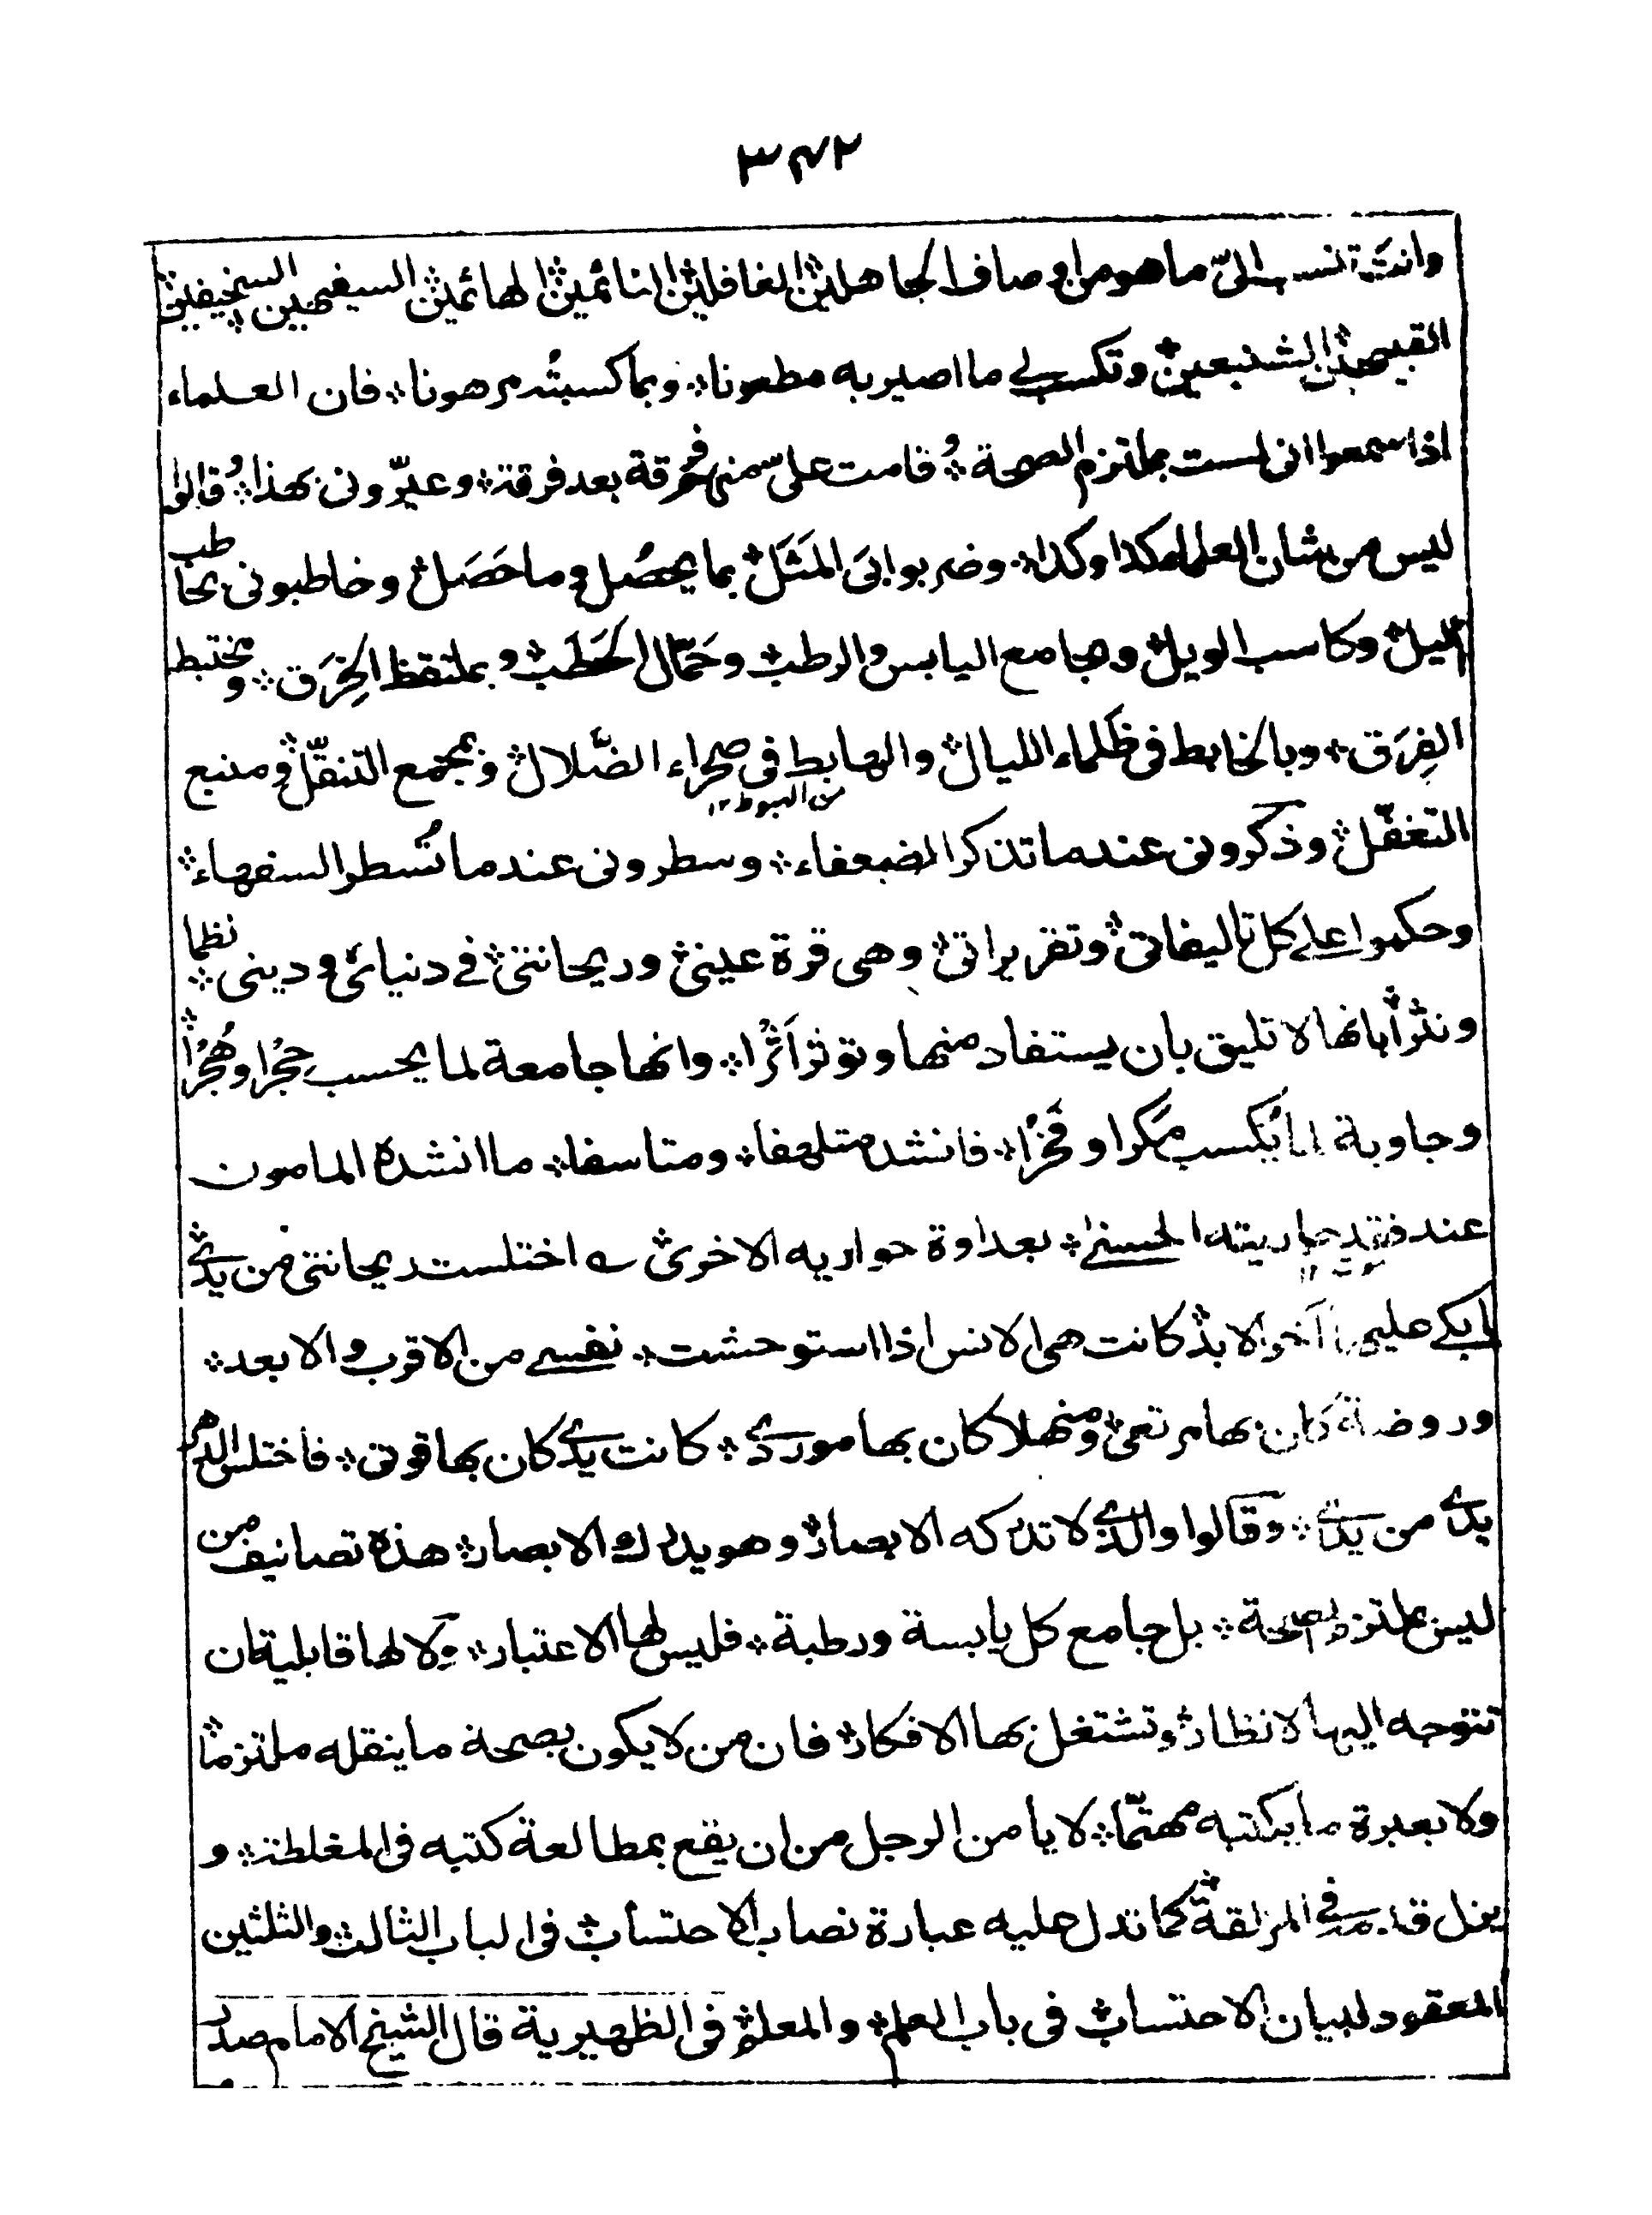 ٣٤٢
وانت تنسب الىّ ما هو من اوصاف الجاهلين؞ الغافلين؞ النائمين؞ الهائمين؞ السفيهين؞ السخيفين؞
القبيحين؞ الشنيعين؞ وتكسب لے ما اصير به مطعونا؞ وبما كسبتُه مرهونا؞ فان العلماء
اذا سمعوا انى لست بملتزم الصحة؞ قامت علىّ منهم فرقة بعد فرقة؞ وعيّرونى بهذا؞ وقالوا
ليس من شان العلماء كذا وكذا؞ وضربوا بىَ المَثَل؞ بما يحصُل وما حَصَل؞ وخاطبونى بحاطب
الليل؞ وكاسب الويل؞ وبجامع اليابس والرطب؞ وحَمّال الحَطَب؞ وبملتقط الخِرَق؞ ومختبط
الفِرَق؞ وبالخابط فى ظلماء الليال؞ والهابط فى صحراء الضّلال؞ وبمجمع التنقّل؞ ومنبع
من الهبوط١٢
التغفّل؞ وذكرونى عند ما تذكر الضعفاء؞ وسطرونى عند ما تُسطر السفهاء؞
وحكموا علے كل تاليفاتى؞ وتقريراتى؞ وهى قرة عينى؞ وريحانتى؞ فے دنيائى ودينى؞ نظما
ونثرا؞ بانها لا تليق بان يستفاد منها وتوثر اَثَرا؞ وانها جامعة لما يحسب حِجْرا وهُجْرا؞
وحاوية لما يُكسب مَكرا وفَخْرا؞ فانشد متلهفا؞ ومتاسفا؞ ما انشده المامون
عند فقد جاريته الحسنےٰ؞ بعداوة جواريه الاخرى؞ ے اختلست ريحانتى من يدے؞
ابكے عليها آخر الابد؞ كانت هى الانس اذا استوحشت؞ نفسے من الاقرب والابعد؞
وروضة كان بها مرتعى؞ ومنهلا كان بها موردے؞ كانت يدے كان بها قوتى؞ فاختلس الدهر
يدے من يدے؞ وقالوا والذے لا تدركه الابصار؞ وهو يدرك الابصار؞ هذه تصانيف من
ليس بملتزم الصحة؞ بل جامع كل يابسة ورطبة؞ فليس لها الاعتبار؞ ولا لها قابلية ان
تتوجه اليها الانظار؞ وتشتغل بها الافكار؞ فان من لا يكون بصحة ما ينقله ملتزما؞
ولا بعبرة ما يكتبه مهتمّا؞ لا يأمن الرجل من ان يقع بمطالعة كتبه فى المغلطة؞ و
يزل قدمه فے المزلقة؞ كما تدل عليه عبارة نصاب الاحتساب؞ فى الباب الثالث والثلثين
المعقود لبيان الاحتساب؞ فى باب العلم؞ والمعلم؞ فى الظهيرية قال الشيخ الامام صدر